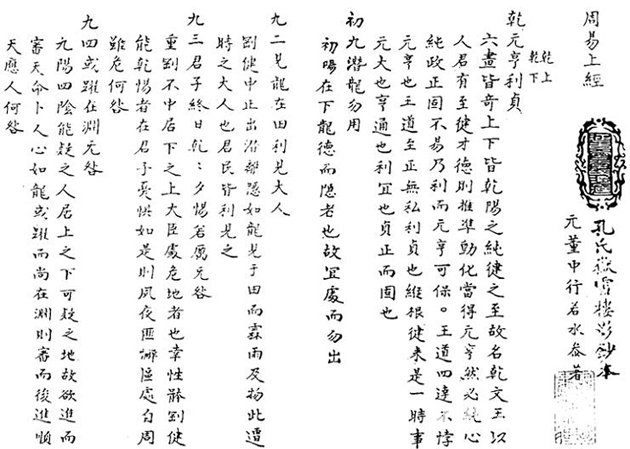 周易上經
乾上
乾下
孔氏嶽雪樓影鈔本
元董中行若水叅著
乾元亨利貞
六畫皆竒上下皆乾陽之純徤之至故名乾文王以
人君有至徤才德則推準動化當得元亨然必純心
純政正固不易乃利而元亨可保。王道四達不悖
元亨也王道至正無私利貞也縱根徤来是一時事
元大也亨通也利宜也貞正而固也
初九潛龍勿用
初陽在下龍德而隱者也故宜處而勿出
九二見龍在田利見大人
剛健中正出潛離隱如龍見于田而霖雨及物此遭
時之大人也君民皆利見之
九三君子終日乾〻夕惕若厲无咎
重剛不中居下之上大臣處危地者也幸性體剛健
能乾惕者在君子憂惧如是則夙夜匪懈區處自周
雖危何咎
九四或躍在淵无咎
九陽四陰能疑之人居上之下可疑之地故欲進而
審天命卜人心如龍或躍而尚在淵則審而後進順
天應人何咎